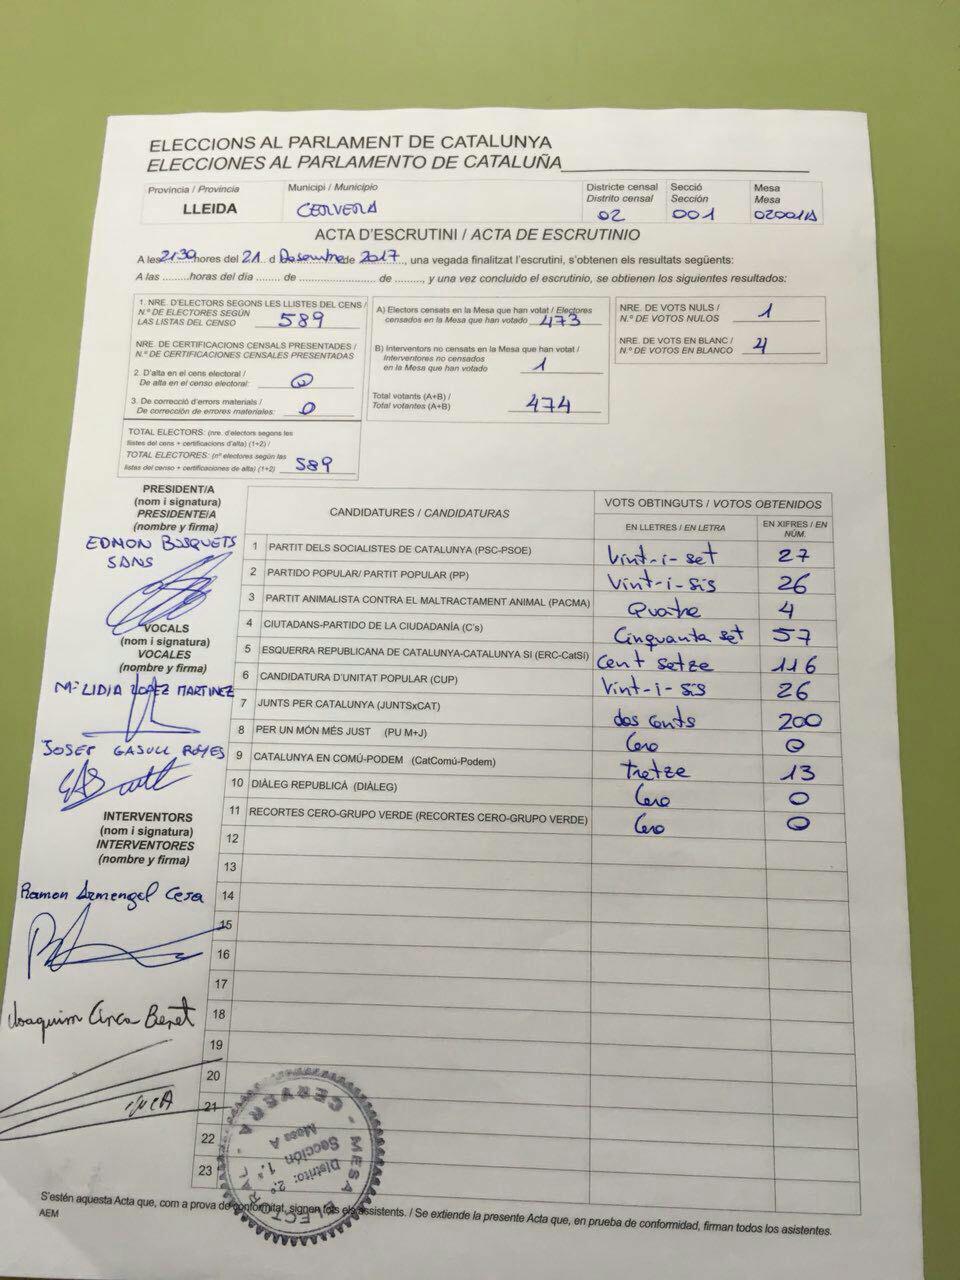 ELECCIONS AL PARLAMENT DE CATALUNYA
ELECCIONES AL PARLAMENTO DE CATALUÑA
Província / Provincia
LLEIDA
Municipi / Municipio
CERVERA
Districte censal
Distrito censal
02
Secció
Sección
001
Mesa
Mesa
02001A
ACTA D'ESCRUTINI / ACTA DE ESCRUTINIO
A les 21:30 hores del 21 d Desembre de 2017, una vegada finalitzat l'escrutini, s'obtenen els resultats següents:
A las .........horas del día ....... de ........................ de ........, y una vez concluido el escrutinio, se obtienen los siguientes resultados:
1. NRE. D'ELECTORS SEGONS LES LLISTES DEL CENS /
N.º DE ELECTORES SEGÚN
LAS LISTAS DEL CENSO 589
NRE. DE CERTIFICACIONS CENSALS PRESENTADES /
N.º DE CERTIFICACIONES CENSALES PRESENTADAS
2. D'alta en el cens electoral /
De alta en el censo electoral: 0
3. De correcció d'errors materials /
De corrección de errores materiales: 0
TOTAL ELECTORS: (nre. d'electors segons les
llistes del cens + certificacions d'alta) (1+2) /
TOTAL ELECTORES: (nº electores según las
listas del censo + certificaciones de alta) (1+2) 589
A) Electors censats en la Mesa que han votat / Electores
censados en la Mesa que han votado 473
B) Interventors no censats en la Mesa que han votat /
Interventores no censados
en la Mesa que han votado 1
Total votants (A+B) /
Total votantes (A+B) 474
NRE. DE VOTS NULS /
N.º DE VOTOS NULOS 1
NRE. DE VOTS EN BLANC /
N.º DE VOTOS EN BLANCO 4
PRESIDENT/A
(nom i signatura)
PRESIDENTE/A
(nombre y firma)
EDMON BUSQUETS
SANS
VOCALS
(nom i signatura)
VOCALES
(nombre y firma)
Mª LIDIA LOPEZ MARTINEZ
JOSEP GASULL ROYES
INTERVENTORS
(nom i signatura)
INTERVENTORES
(nombre y firma)
Ramon Armengol Cesa
Joaquim
CANDIDATURES / CANDIDATURAS
VOTS OBTINGUTS / VOTOS OBTENIDOS
EN LLETRES / EN LETRA
EN XIFRES / EN NÚM.
1 PARTIT DELS SOCIALISTES DE CATALUNYA (PSC-PSOE) Vint-i-set 27
2 PARTIDO POPULAR/ PARTIT POPULAR (PP) Vint-i-sis 26
3 PARTIT ANIMALISTA CONTRA EL MALTRACTAMENT ANIMAL (PACMA) Quatre 4
4 CIUTADANS-PARTIDO DE LA CIUDADANÍA (C's) Cinquanta set 57
5 ESQUERRA REPUBLICANA DE CATALUNYA-CATALUNYA SÍ (ERC-CatSí) Cent setze 116
6 CANDIDATURA D'UNITAT POPULAR (CUP) Vint-i-sis 26
7 JUNTS PER CATALUNYA (JUNTSxCAT) dos cents 200
8 PER UN MÓN MÉS JUST (PU M+J) Cero 0
9 CATALUNYA EN COMÚ-PODEM (CatComú-Podem) tretze 13
10 DIÀLEG REPUBLICÀ (DIÀLEG) Cero 0
11 RECORTES CERO-GRUPO VERDE (RECORTES CERO-GRUPO VERDE) Cero 0
12
13
14
15
16
17
18
19
20
21
22
23
MESA ELECTORAL - CERVERA -
Distrito: 2.º
Sección 1.ª
Mesa A
S'estén aquesta Acta que, com a prova de conformitat, signen tots els assistents. / Se extiende la presente Acta que, en prueba de conformidad, firman todos los asistentes.
AEM